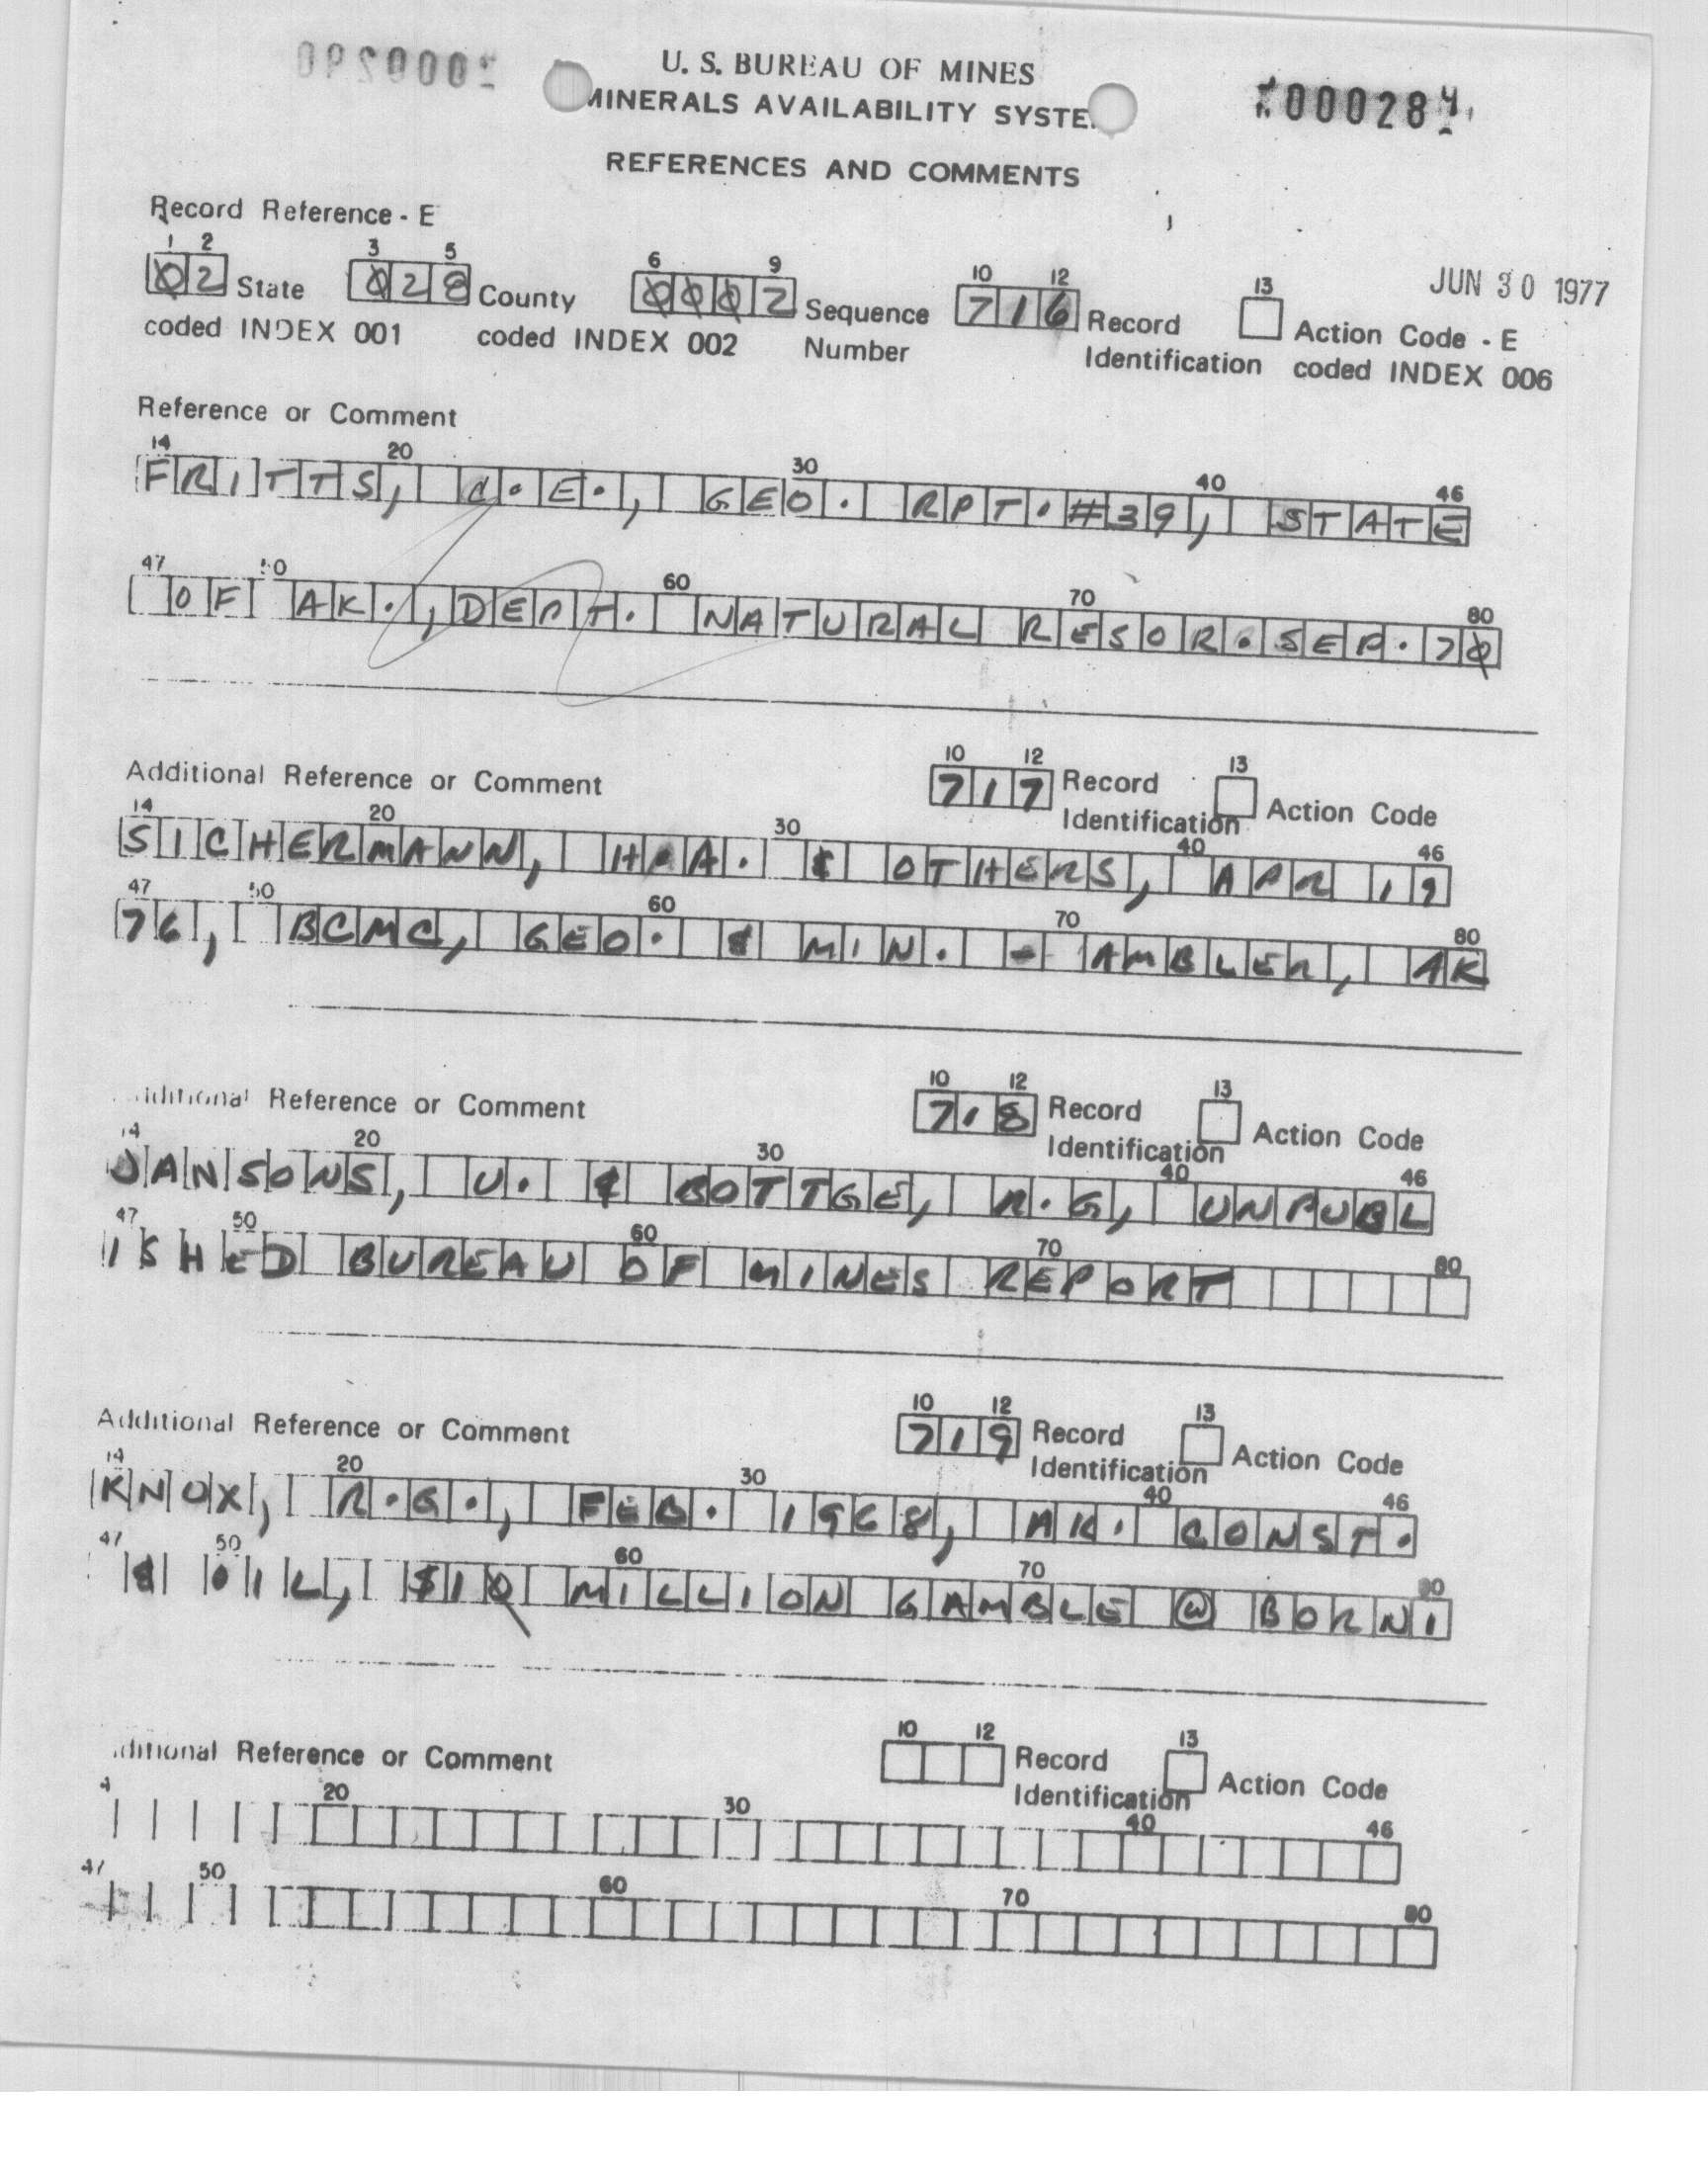 U. S. BUREAU OF MINES
MINERALS AVAILABILITY SYSTE
REFERENCES AND COMMENTS
Record Reference - E
1 2 3 5 6 9 10 12 13
JUN 30 1977
02 State 028 County 0002 Sequence Number 716 Record Identification Action Code - E
coded INDEX 001 coded INDEX 002 coded INDEX 006
Reference or Comment
14 20 30 40 46
FRITTS, C.E., GEO. RPT.#39, STATE
47 50 60 70 80
OF AK., DEPT. NATURAL RESOR.SEP.70
Additional Reference or Comment
10 12 13
717 Record Identification Action Code
14 20 30 40 46
SICHERMANN, H.A. & OTHERS, APR 19
47 50 60 70 80
76, BCMC, GEO. & MIN. - AMBLER, AK
Additional Reference or Comment
10 12 13
718 Record Identification Action Code
14 20 30 40 46
JANSONS, U. & BOTTGE, R.G, UNPUBL
47 50 60 70 80
ISHED BUREAU OF MINES REPORT
Additional Reference or Comment
10 12 13
719 Record Identification Action Code
14 20 30 40 46
KNOX, R.G., FEB. 1968, AK. CONST.
47 50 60 70 80
& OIL, $10 MILLION GAMBLE @ BORNI
ditional Reference or Comment
10 12 13
Record Identification Action Code
4 20 30 40 46
47 50 60 70 80